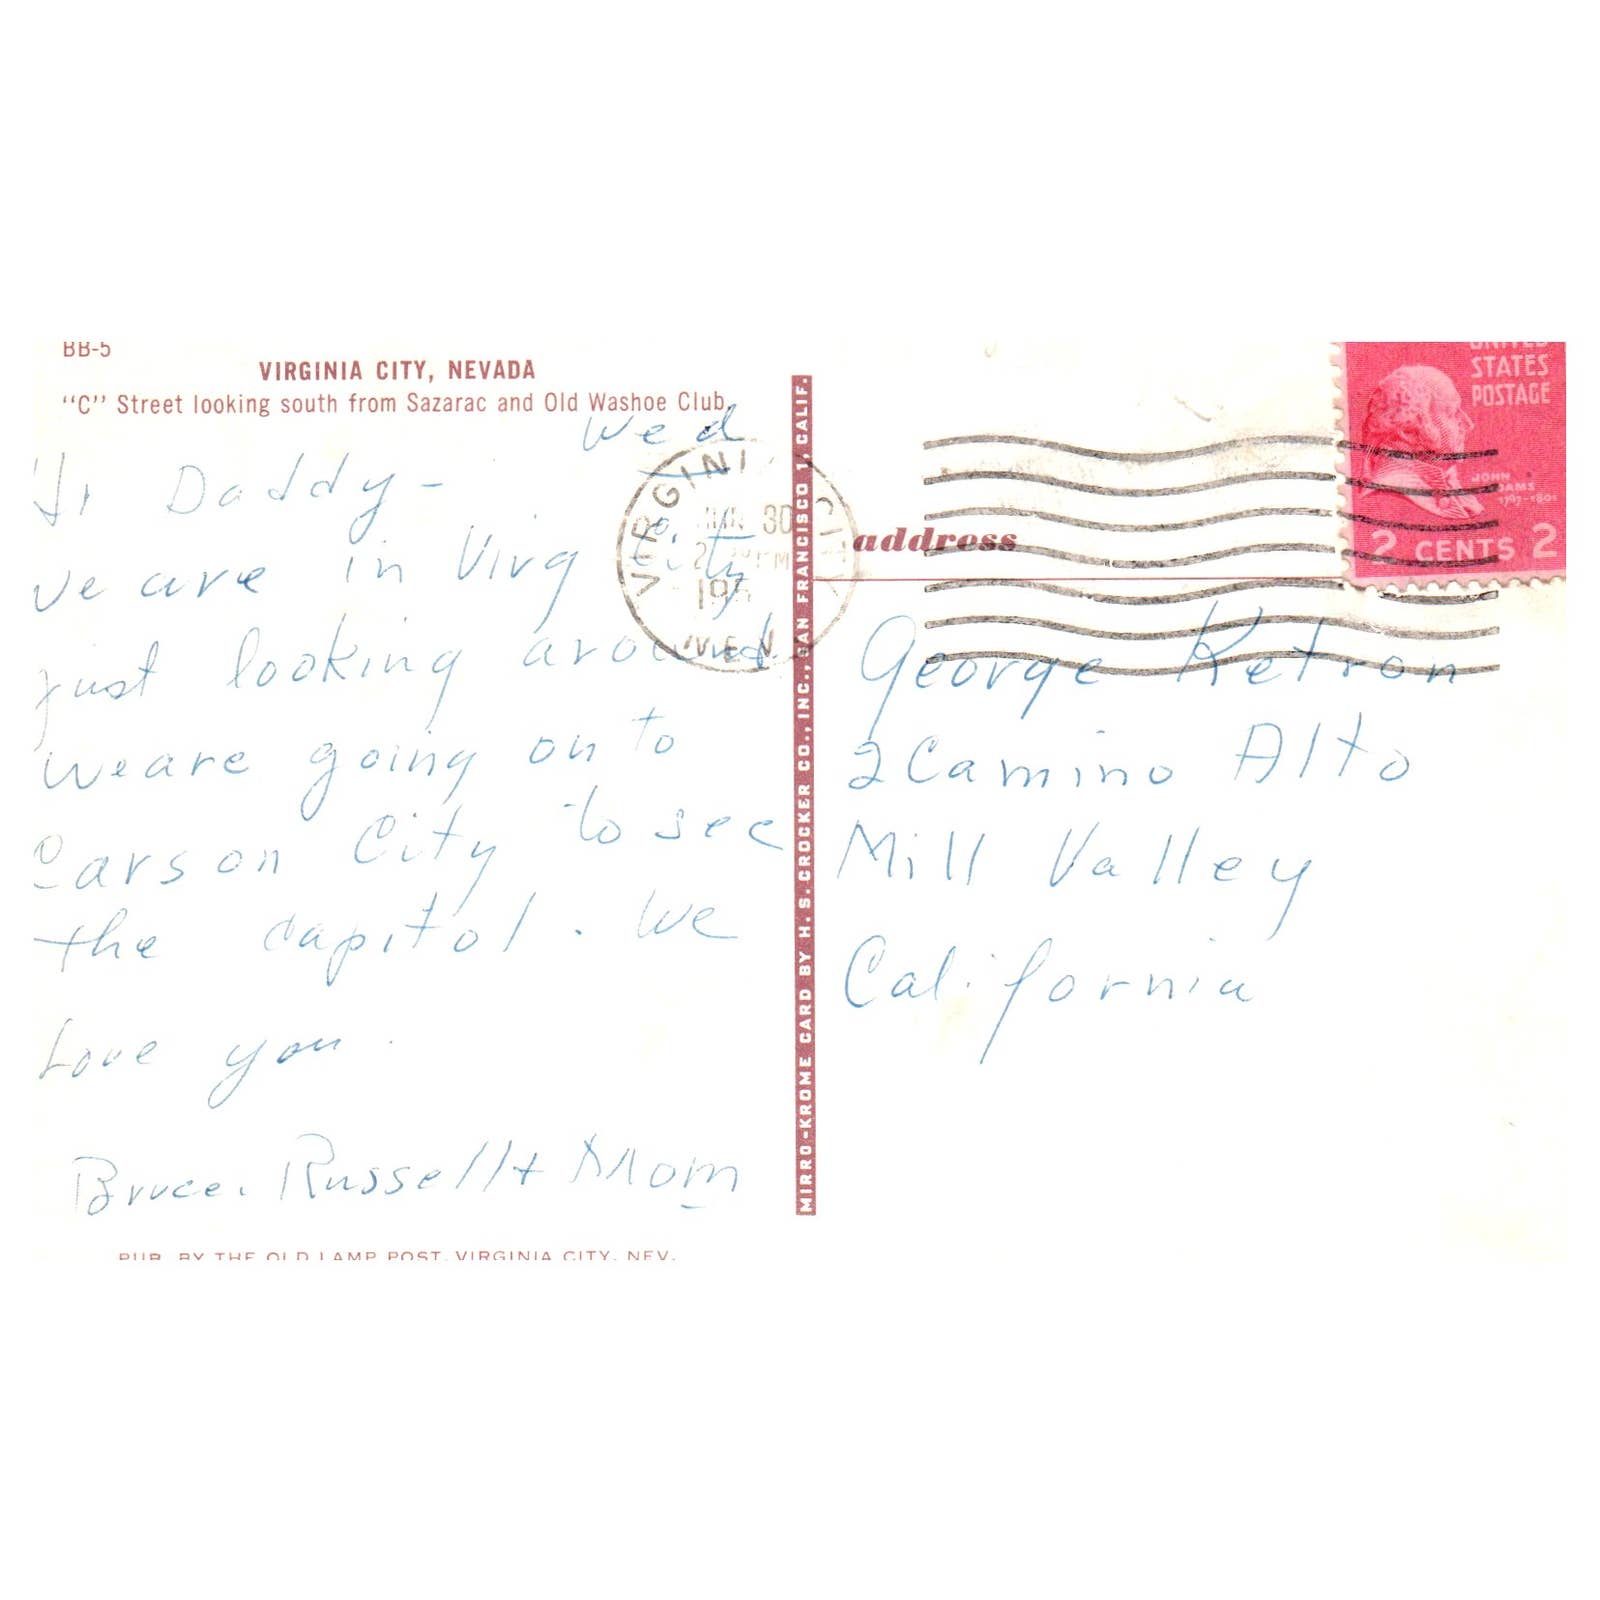 BB-5
VIRGINIA CITY, NEVADA
"C" Street looking south from Sazarac and Old Washoe Club.
Wed
Hi Daddy -
We are in Virg city
just looking around.
We are going on to
Carson City to see
the capitol. We
Love you.
Bruce. Russell + Mom
PUB. BY THE OLD LAMP POST, VIRGINIA CITY, NEV.
MIRRO-KROME CARD BY H. S. CROCKER CO., INC., SAN FRANCISCO 1, CALIF.
VIRGINIA CITY
JUN 30
2 PM
NEV
UNITED
STATES
POSTAGE
JOHN
ADAMS
1797-1801
2 CENTS 2
address
George Ketron
2 Camino Alto
Mill Valley
California